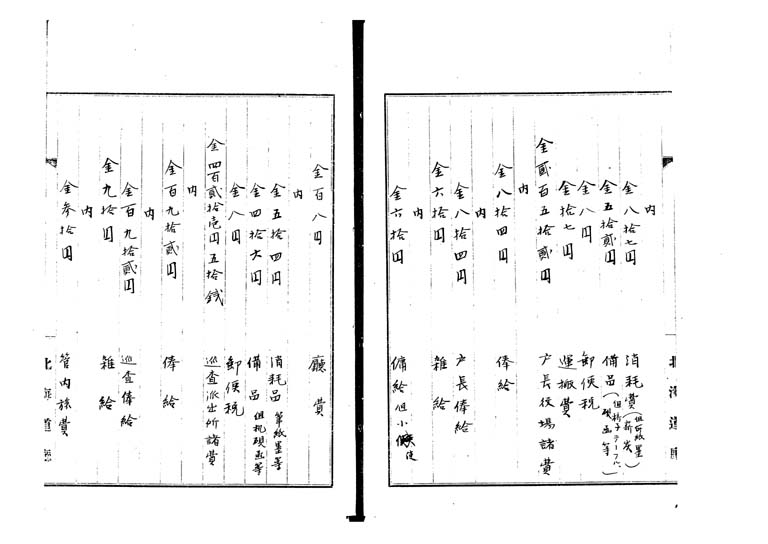 内
金八拾七円 消耗費(但シ紙墨薪炭)
金五拾貳円 備品(但椅子テーブル硯函等)
金八円 郵便税
金拾七円 運搬費
金貳百五拾貳円 戸長役場諸費
内
金八拾四円 俸給
内
金八拾四円 戸長俸給
金六拾円 雑給
内
金六拾円 傭給 但小使
北海道廳
金百八円 廳費
内
金五拾四円 消耗品 筆紙墨等
金四拾六円 備品 但机硯函等
金八円 郵便税
金四百貳拾壱円五拾銭 巡査派出所諸費
内
金百九拾貳円 俸給
内
金百九拾貳円 巡査俸給
金九拾円 雑給
内
金参拾円 管内旅費
北海道廳